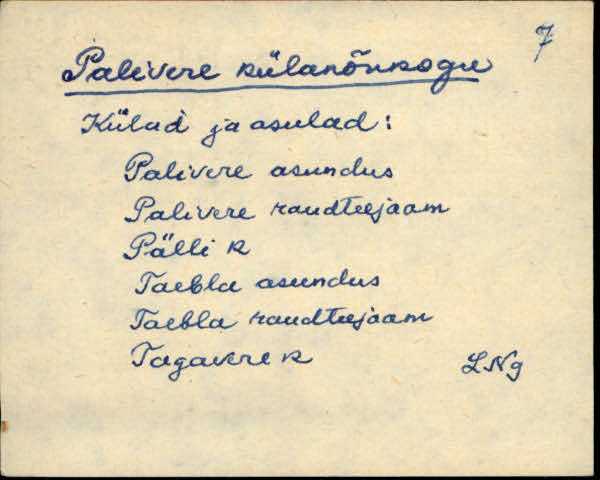 7
Palivere külanõukogu
Külad ja asulad:
Palivere asundus
Palivere raudteejaam
Pälli k
Taebla asundus
Taebla raudteejaam
Tagavere k
LNg